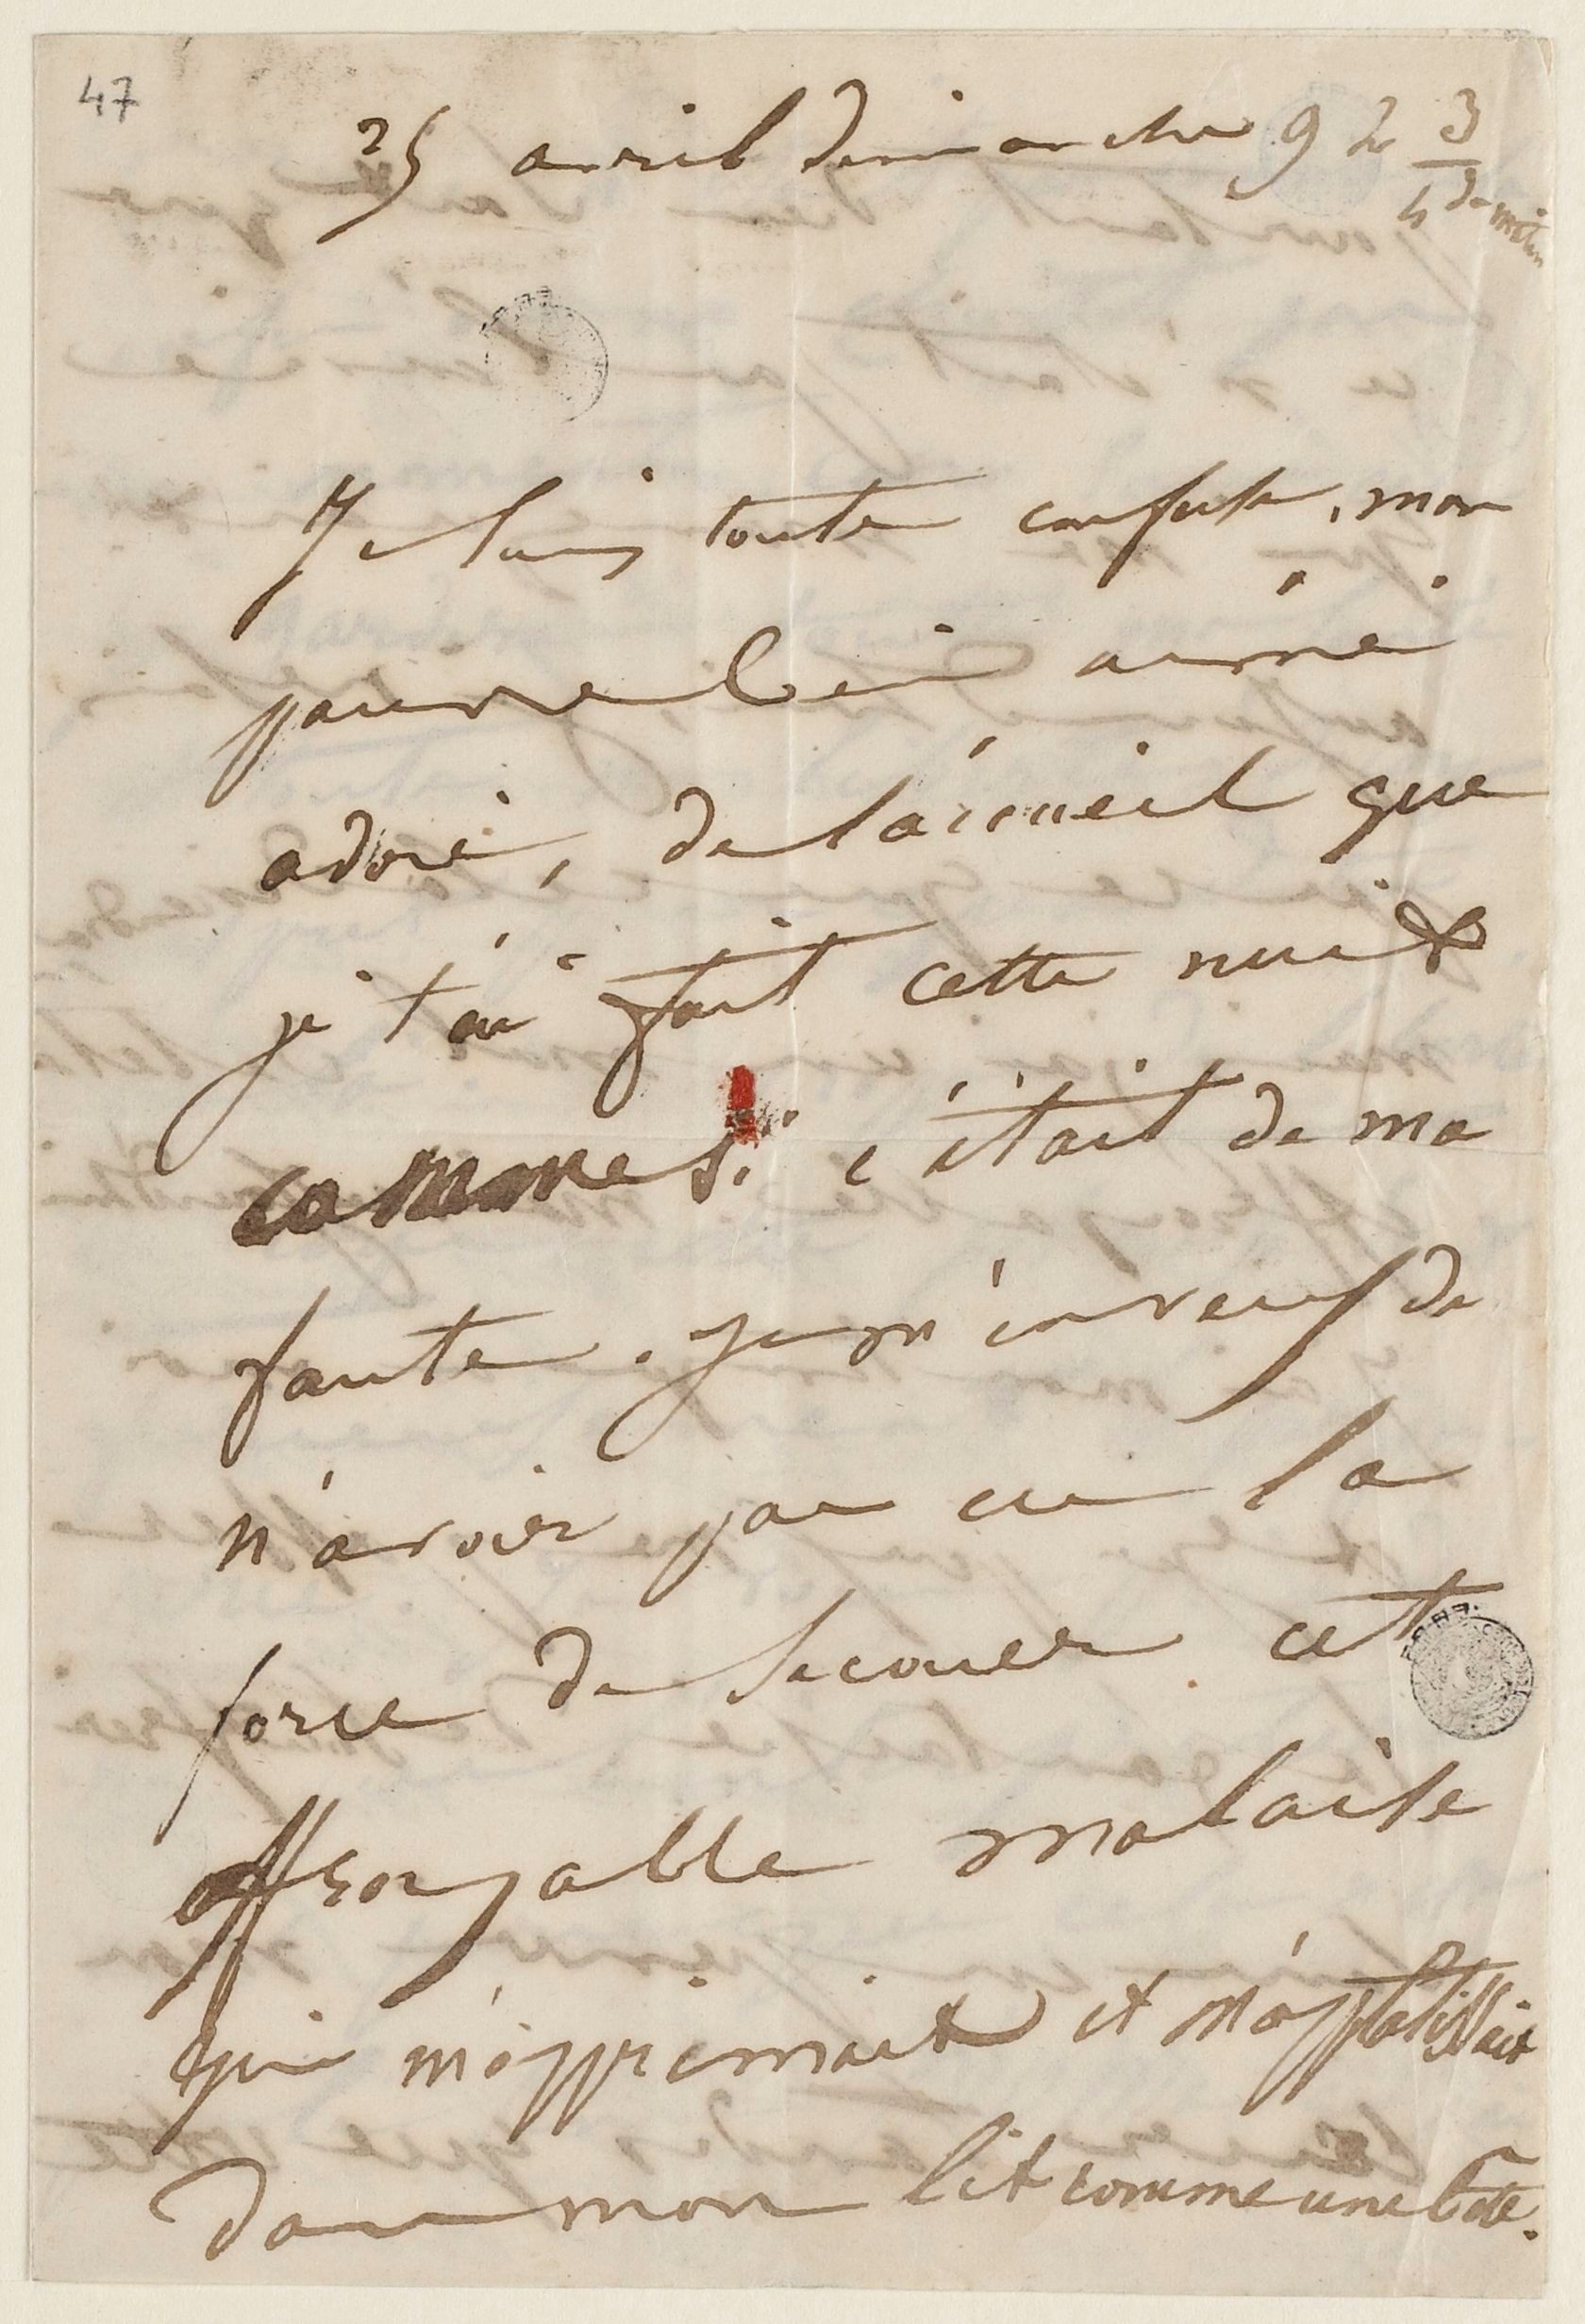 47
25 avril dimanche 9 h 3/4 du matin
Je suis toute confuse, mon
pauvre bien aimé
adoré, de l'accueil que
je t'ai fait cette nuit
comme si c'était de ma
faute. Je m'en veux de
n'avoir pas eu la
force de secouer cet
effroyable malaise
qui m'opprimait et m'applatissait
dans mon lit comme une bête.